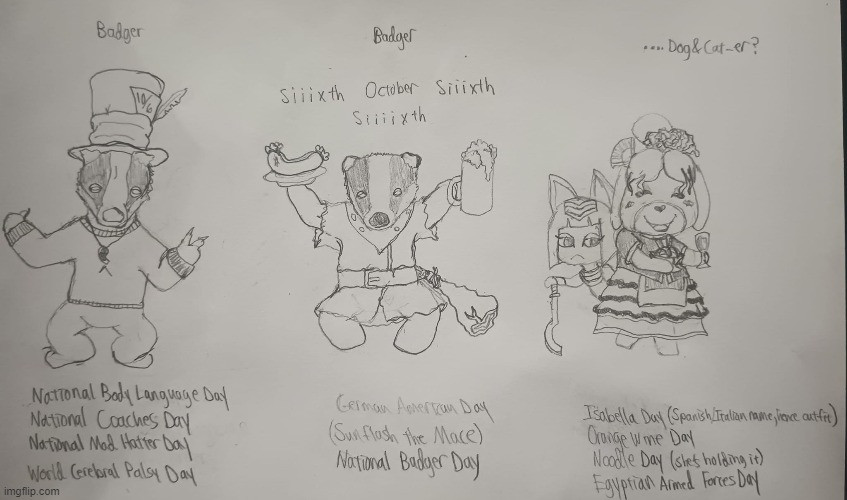 Badger
10/6
National Body Language Day
National Coaches Day
National Mad Hatter Day
World Cerebral Palsy Day
Badger
Siiixth October Siiixth
Siiiixth
German American Day
(Sunflash the Mace)
National Badger Day
.... Dog&Cat-er?
Isabella Day (Spanish/Italian name, hence outfit)
Orange Wine Day
Noodle Day (she's holding it)
Egyptian Armed Forces Day
imgflip.com